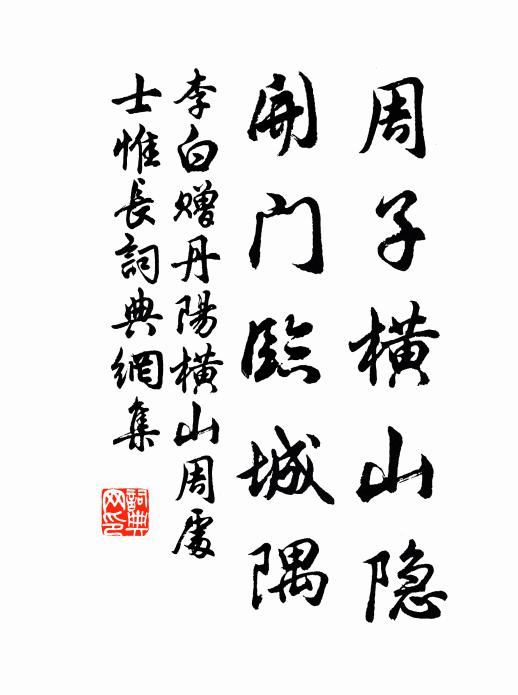 周子横山隐
開門臨城隅
李白赠丹陽横山周處
士惟長詞典網集
詞典
网印